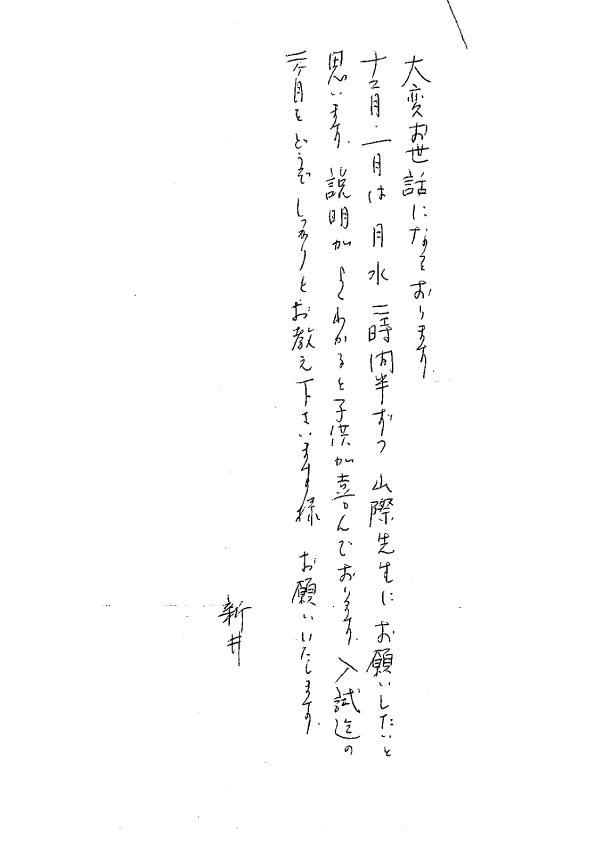 大変お世話になっております。
十二月・一月は 月水 二時間半ずつ 山際先生に お願いしたいと
思います。説明が よくわかると子供が喜んでおります。入試迄の
二ヶ月をどうぞ しっかりとお教え下さいます様 お願いいたします。
新井